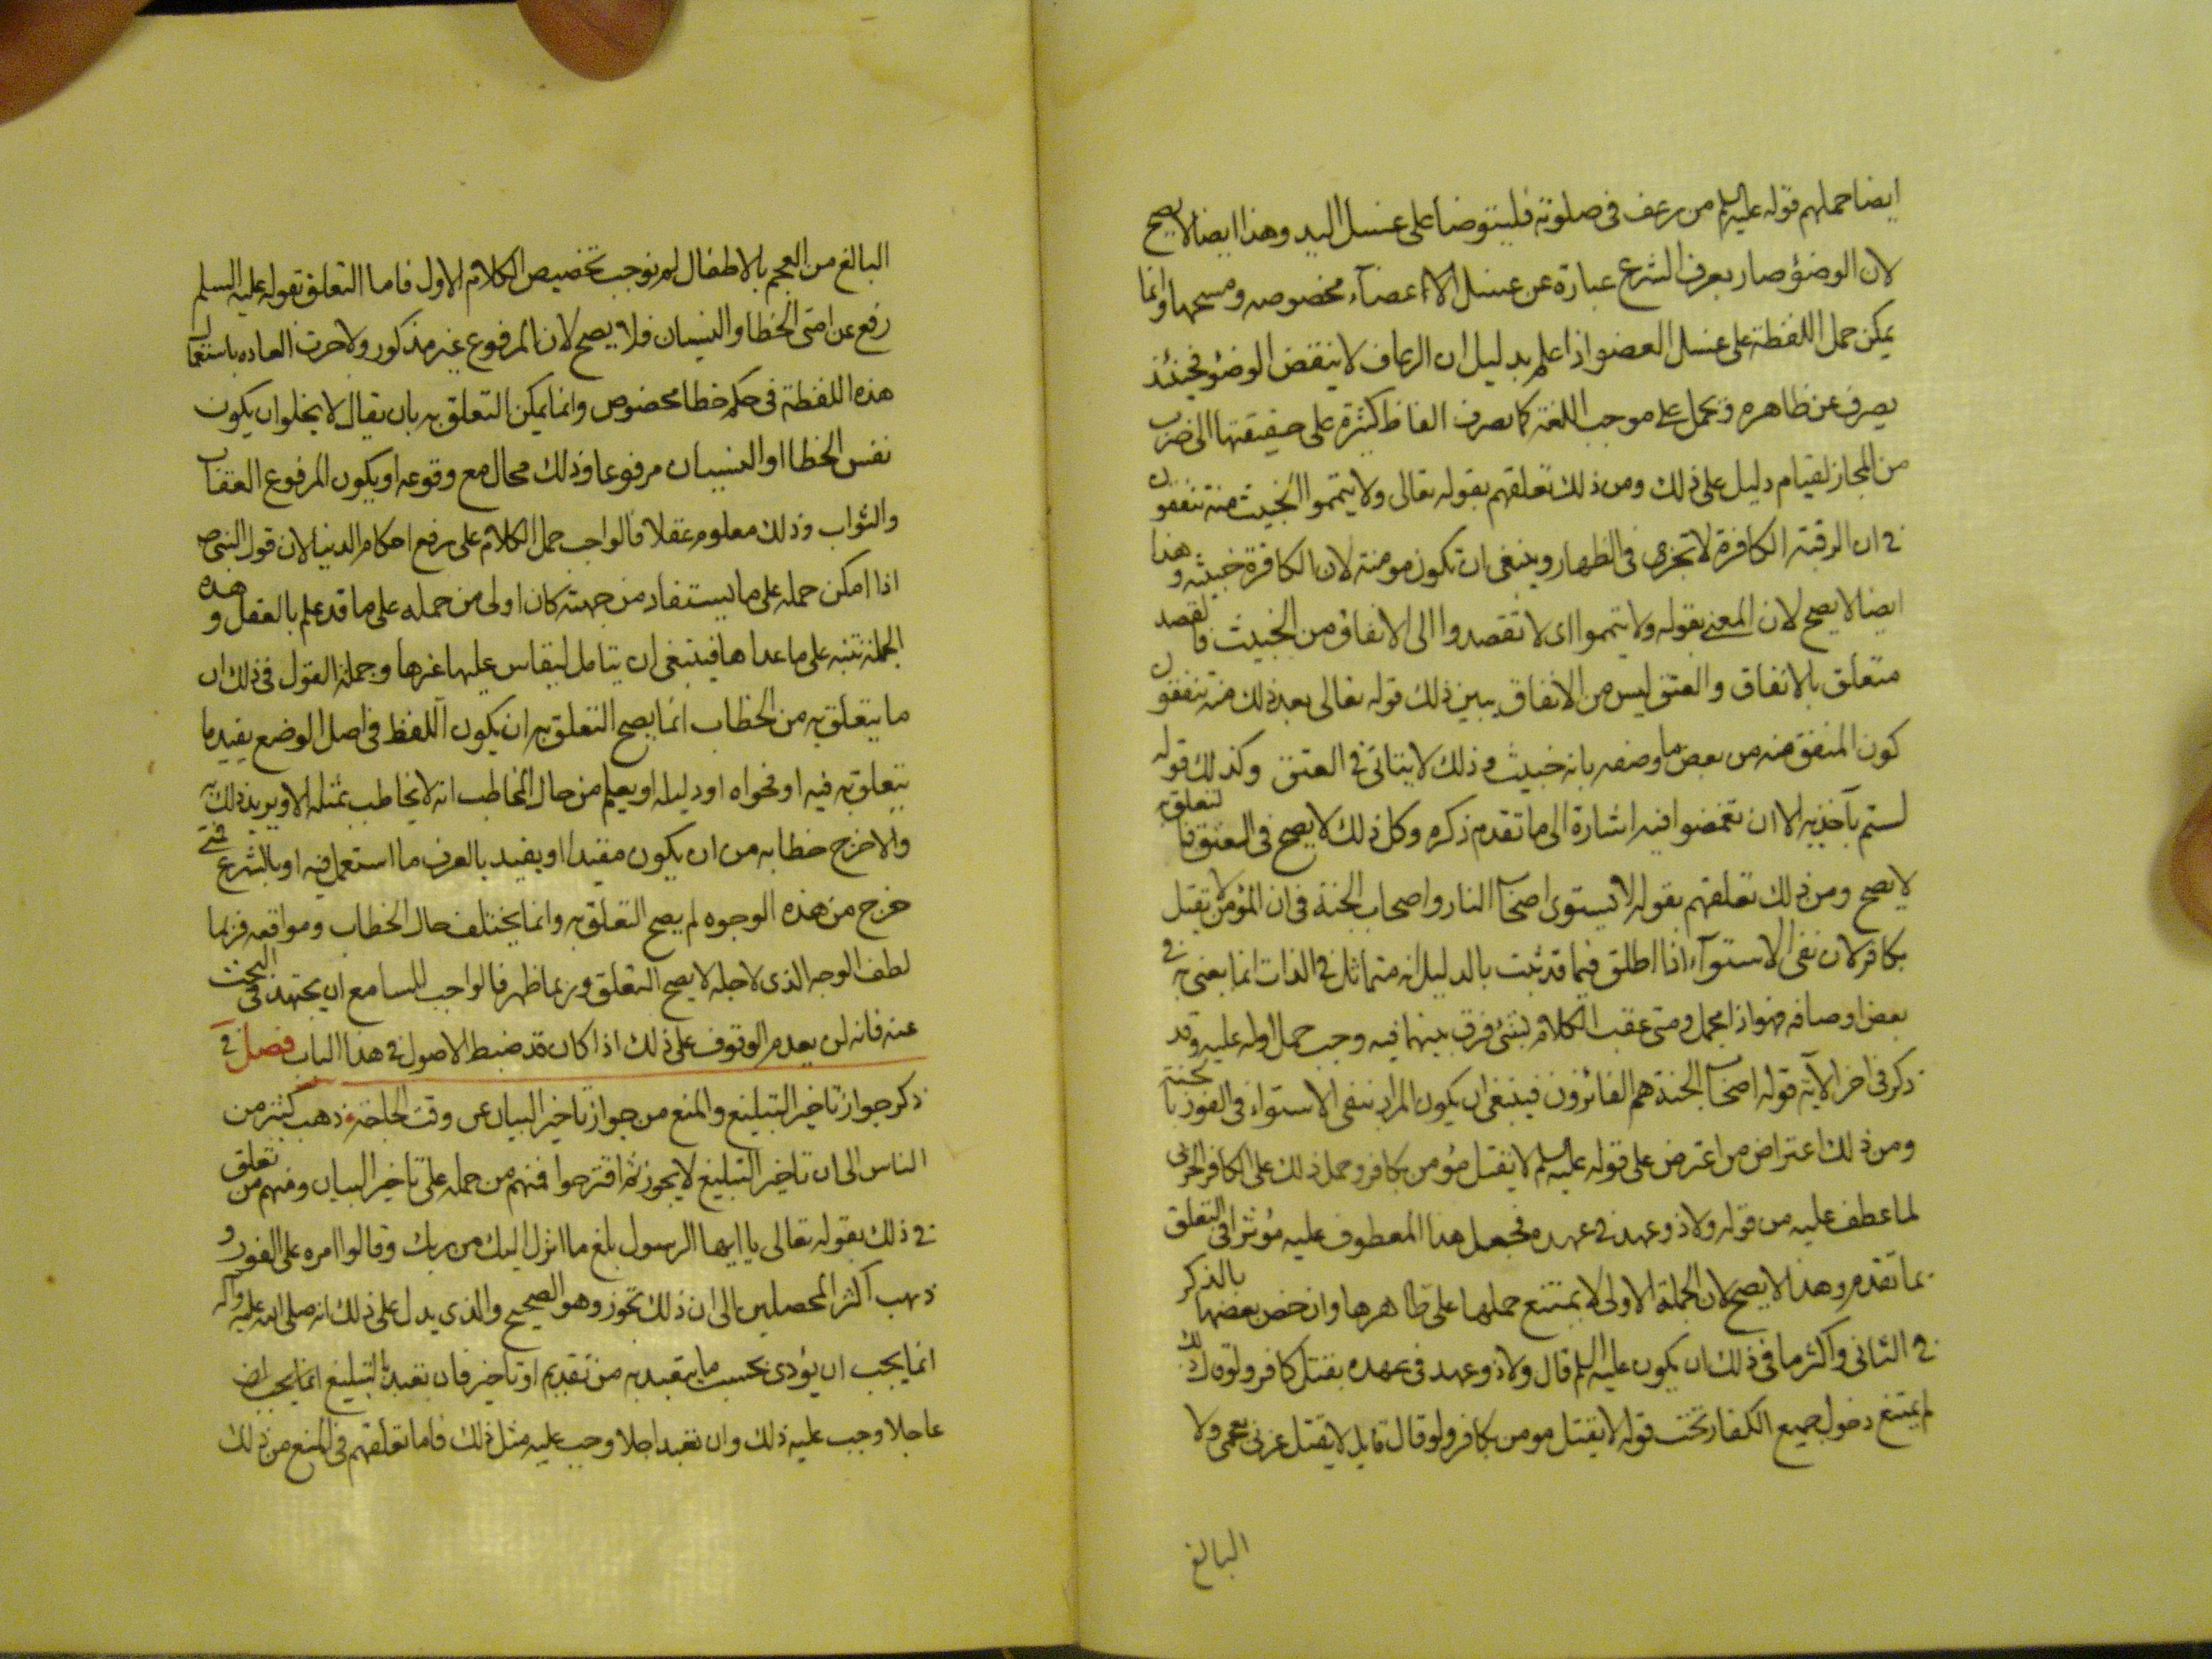 ايضا حملهم قوله عليه السلم من رعف في صلوته فليتوضا على غسل اليد وهذا ايضا لا يصح
لان الوضؤ صار بعرف الشرع عبارة عن غسل الاعضآء مخصوصه ومسحها وانما
يمكن حمل اللفظة على غسل العضو اذا علم بدليل ان الرعاف لا ينقض الوضؤ فحينئذ
يصرف عن ظاهره ويحمل على موجب اللغة كما يصرف الفاظ كثيرة على حقيقتها الى ضرب
من المجاز لقيام دليل على ذلك ومن ذلك تعلقهم بقوله تعالى ولا يتمموا الخبيث منه تنفقون
في ان الرقبة الكافرة لا تجزى في الظهار وينبغى ان تكون مومنة لان الكافرة خبيثه وهذا
ايضا لا يصح لان المعنى بقوله ولا يتمموا اى لا تقصدوا الى الانفاق من الخبيث فالقصد
متعلق بالانفاق والعتق ليس من الانفاق يبين ذلك قوله تعالى بعد ذلك منه تنفقون
كون المنفق منه من بعض ما وصفه بانه خبيث وذلك لا يتاتى في العتق وكذلك قوله
لستم بآخذيه الا ان تغمضوا فيه اشارة الى ما تقدم ذكره وكل ذلك لا يصح في العتق فالتعلق به
لا يصح ومن ذلك تعلقهم بقوله لا يستوى اصحاب النار واصحاب الجنة في ان المؤمن لا يقتل
بكافر لان نفى الاستوآء اذا اطلق فيما قد ثبت بالدليل انه متماثل في الذات انما يعنى به في
بعض اوصافه فهو اذا مجمل ومتى عقب الكلام بشئ فرق بينهما فيه وجب حمل اوله عليه وقد
ذكر في اخر الآية قوله اصحاب الجنة هم الفائزون فينبغى ان يكون المراد بنفى الاستواء في الفوز بالجنة
ومن ذلك اعتراض من اعترض على قوله عليه السلم لا يقتل مؤمن بكافر وحمل ذلك على الكافر الحربى
لما عطف عليه من قوله ولا ذو عهد في عهده فجعل هذا المعطوف عليه مؤثرا في التعلق
بما تقدم وهذا لا يصح لان الجملة الاولى لا يمتنع حملها على ظاهرها وان خص بعضها بالذكر
في الثانى واكثر ما في ذلك ان يكون عليه السلم قال ولا ذو عهد في عهده بقتل كافر ولو كان كذلك
لم يمتنع دخول جميع الكفار تحت قوله لا يقتل مومن بكافر ولو قال قايل لا يقتل عربى بعجمى ولا
البالغ
البالغ من العجم بالاطفال لم يوجب تخصيص الكلام الاول فاما التعلق بقوله عليه السلم
رفع عن امتى الخطا والنسيان فلا يصح لان المرفوع غير مذكور ولا جرت العاده باستعمال
هذه اللفظة في حكم خطا مخصوص وانما يمكن التعلق به بان يقال لا يخلوا ان يكون
نفس الخطا او النسيان مرفوعا وذلك محال مع وقوعه او يكون المرفوع العقاب
والثواب وذلك معلوم عقلا فالواجب حمل الكلام على رفع احكام الدنيا لان قول النبى ص
اذا امكن حمله على ما يستفاد من جهته كان اولى من حمله على ما قد علم بالعقل وهذه
الجملة تنبه على ما عداها فينبغى ان يتامل ليقاس عليها غيرها وجملة القول في ذلك ان
ما يتعلق به من الخطاب انما يصح التعلق به ان يكون اللفظ في اصل الوضع يفيد ما
يتعلق به فيه او فحواه او دليله او يعلم من حال المخاطب انه لا يخاطب بمثله الا ويريد ذلك به
والا خرج خطابه من ان يكون مفيدا او يفيد بالعرف ما استعمل فيه او بالشرع فمتى
خرج من هذه الوجوه لم يصح التعلق به وانما يختلف حال الخطاب ومواقعه فربما
لطف الوجه الذى لاجله لا يصح التعلق وربما ظهر فالواجب للسامع ان يجتهد في البحث
عنه فانه لن يعدم الوقوف على ذلك اذا كان قد ضبط الاصول في هذا الباب فصل في
ذكر جواز تاخير التبليغ والمنع من جواز تاخير البيان عن وقت الحاجة ذهب كثير من
الناس الى ان تاخير التبليغ لا يجوز ثم افترقوا فمنهم من حمله على تاخير البيان ومنهم من تعلق
في ذلك بقوله تعالى يا ايها الرسول بلغ ما انزل اليك من ربك وقالوا امره على الفور و
ذهب اكثر المحصلين الى ان ذلك يجوز وهو الصحيح والذى يدل على ذلك انه صلى الله عليه واله
انما يجب ان يؤدى بحسب ما يتعبد به من تقديم او تاخير فان تعبد بالتبليغ
عاجلا وجب عليه ذلك وان تعبد اجلا وجب عليه مثل ذلك فاما تعلقهم في المنع من ذلك